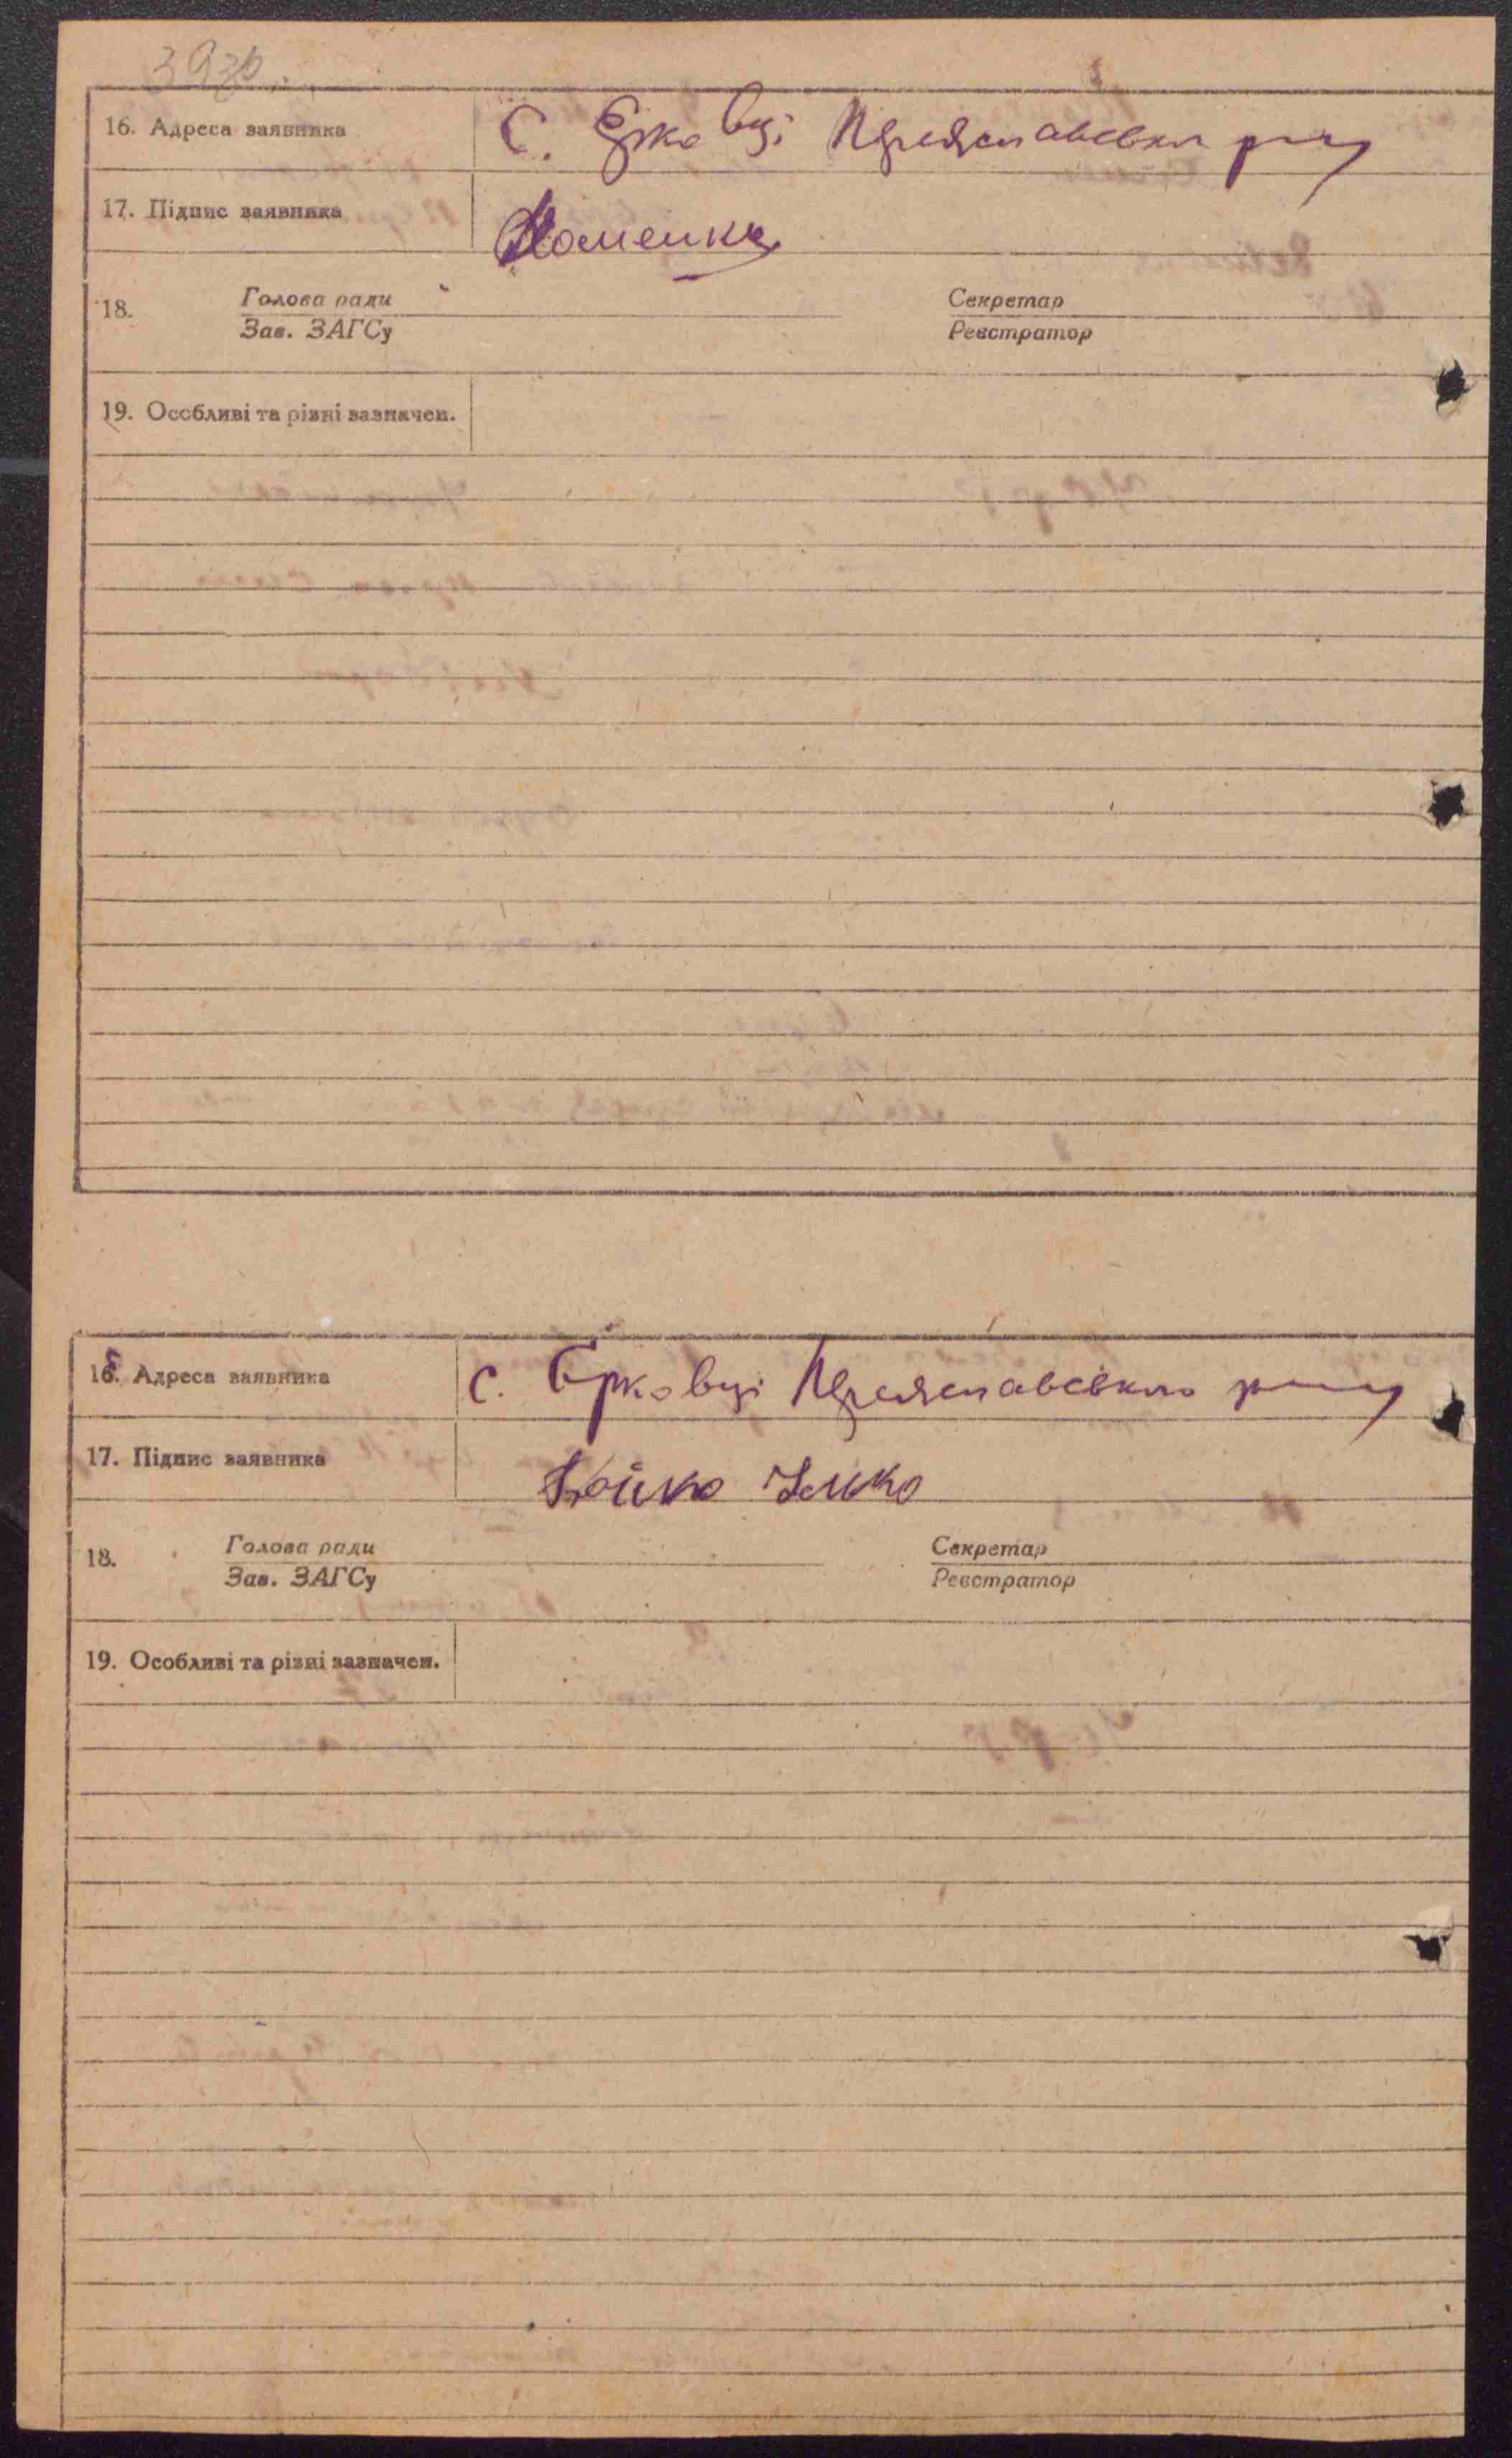 393б
16. Адреса заявника С. Єрковці Переяславськ р-ну
17. Підпис заявника Хоменко
18. Голова ради Секретар
Зав. ЗАГСу Реєстратор
19. Особливі та різні зазначен.
16. Адреса заявника С. Єрковці Переяславсько р-ну
17. Підпис заявника Бойко
18. Голова ради Секретар
Зав. ЗАГСу Реєстратор
19. Особливі та різні зазначен.